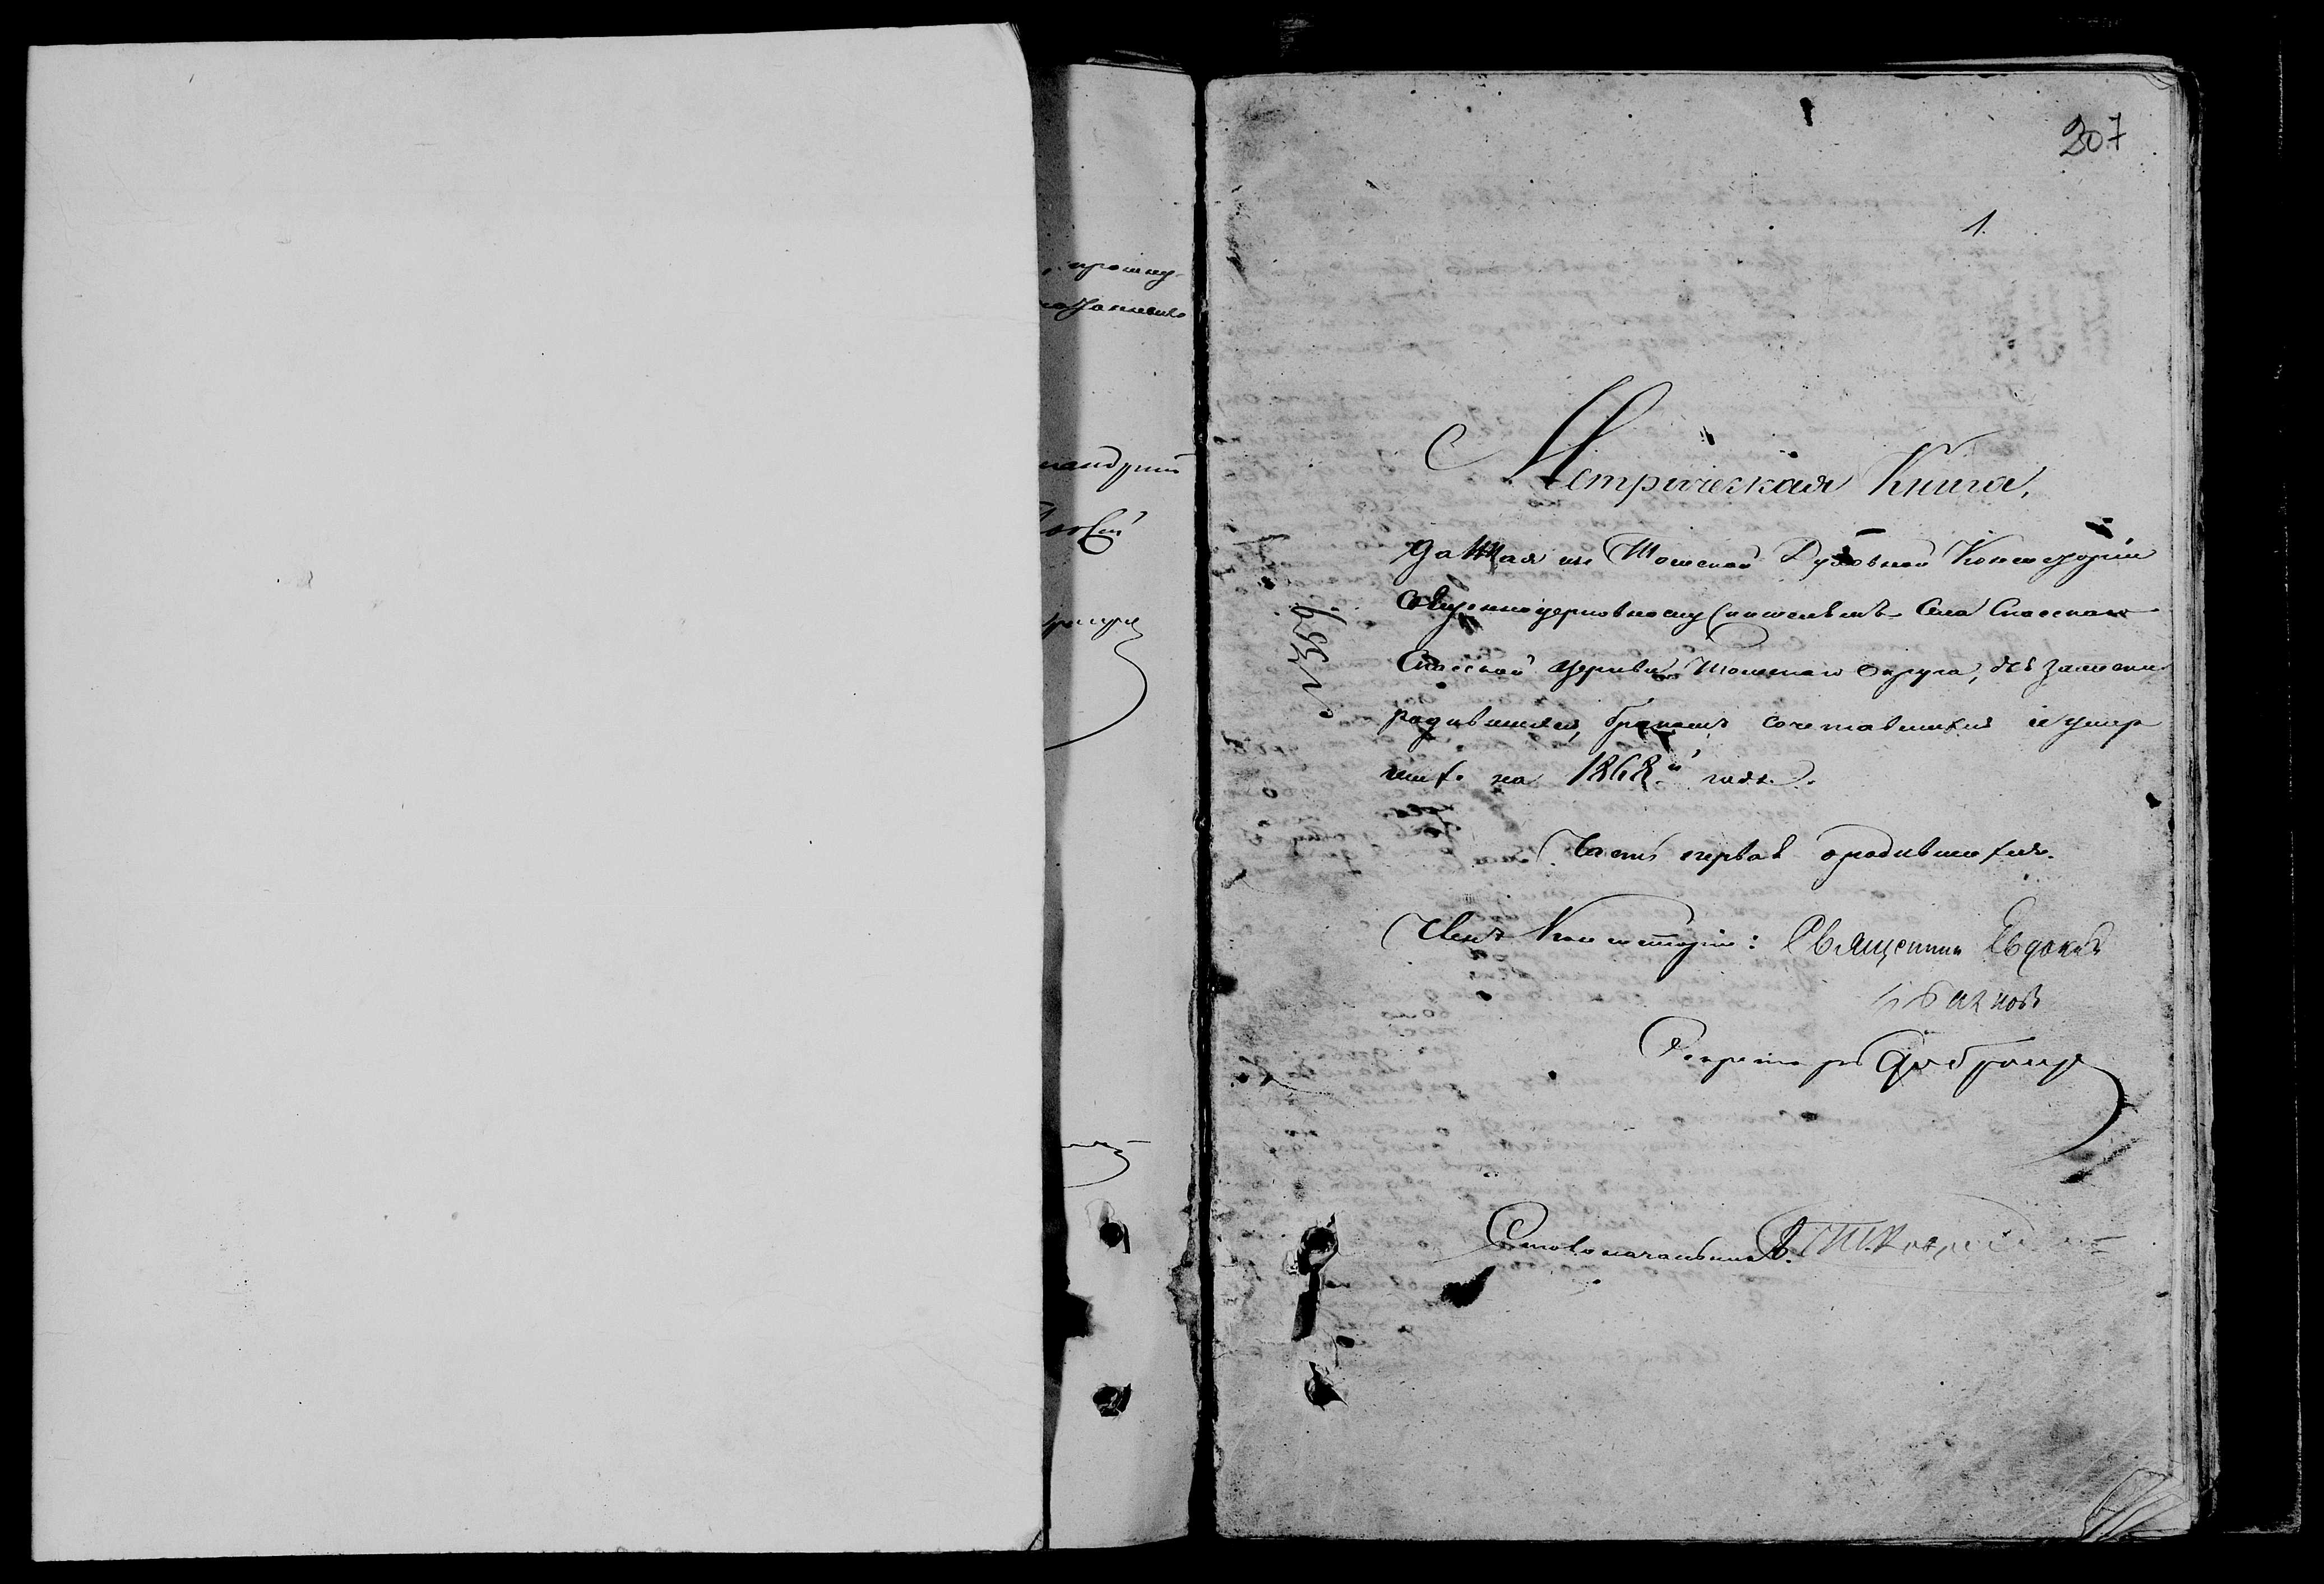 прошну-
мандритъ
207
1.
Метрическая Книга,
данная изъ Томской Духовной Консисторіи
Священноцерковнослужителямъ Села Спасскаго
Спасской церкви Томскаго округа, для записи
родившихся, бракомъ сочетавшихся и умер
шихъ на 1868й годъ.
Часть первая о родившихся.
Членъ Консисторіи: Священникъ Евдокимъ
Секретарь
Столоначальникъ